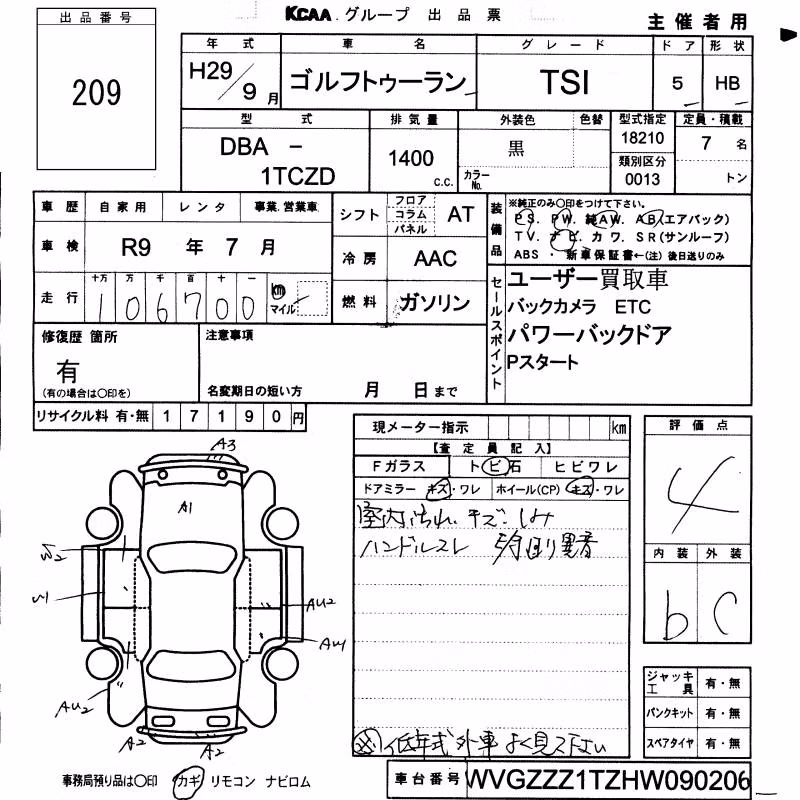 出品番号
KCAA グループ 出品票
主催者用
209
年式 車名 グレード ドア 形状
H29/9月 ゴルフトゥーラン TSI 5 HB
型式 排気量 外装色 色替 型式指定 定員・積載
DBA - 1TCZD 1400 c.c. 黒 カラーNo. 18210 7名
類別区分 0013 トン
車歴 自家用 レンタ 事業.営業車
車検 R9年7月
走行 十万 万 千 百 十 一 km マイル
106700
シフト フロア コラム パネル AT
冷房 AAC
燃料 ガソリン
装備品 ※純正のみ○印をつけて下さい。
PS. PW. 純AW. AB(エアバック)
TV. ナビ. カワ. SR(サンルーフ)
ABS ・ 新車保証書←(注)後日送りのみ
セールスポイント
ユーザー買取車
バックカメラ ETC
パワーバックドア
Pスタート
修復歴 箇所
有
(有の場合は○印を)
注意事項
名変期日の短い方 月 日まで
リサイクル料 有・無 17190円
現メーター指示 km
【査定員記入】
Fガラス トビ石 ヒビワレ
ドアミラー キズ・ワレ ホイール(CP) キズ・ワレ
室内汚れ キズ シミ
ハンドルスレ
※低年式外車よく見て下さい
評価点
4
内装 外装
b C
ジャッキ工具 有・無
パンクキット 有・無
スペアタイヤ 有・無
A3
A1
W2
W1
AU2
AU1
AU2
A2
A2
事務局預り品は○印 カギ リモコン ナビロム
車台番号 WVGZZZ1TZHW090206